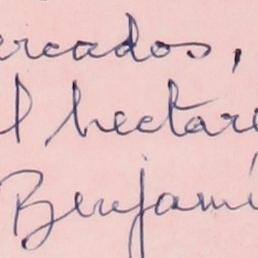 ercados,
l hectare
Benjamí